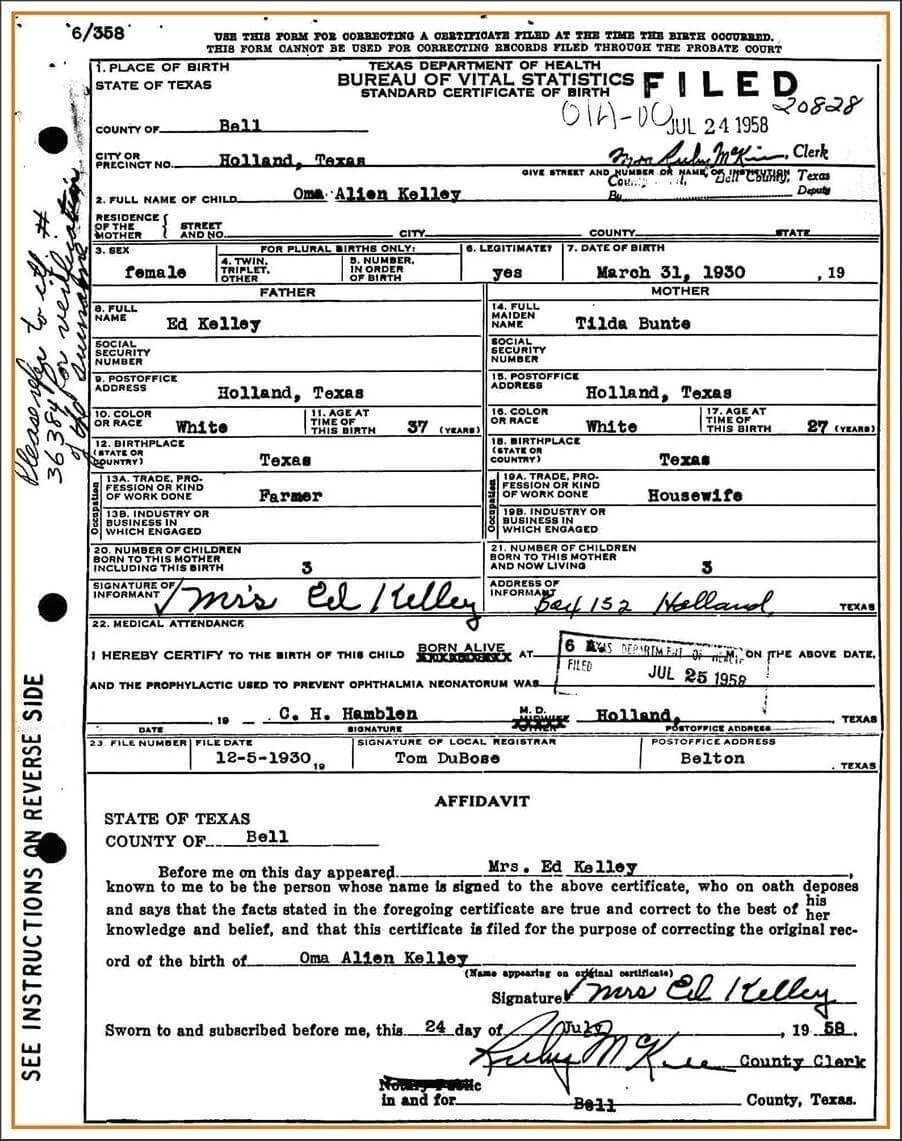 6/358
USE THIS FORM FOR CORRECTING A CERTIFICATE FILED AT THE TIME THE BIRTH OCCURRED.
THIS FORM CANNOT BE USED FOR CORRECTING RECORDS FILED THROUGH THE PROBATE COURT
1. PLACE OF BIRTH
STATE OF TEXAS
TEXAS DEPARTMENT OF HEALTH
BUREAU OF VITAL STATISTICS
STANDARD CERTIFICATE OF BIRTH
FILED
20828
JUL 24 1958
COUNTY OF Bell
CITY OR PRECINCT NO. Holland, Texas
Clerk
GIVE STREET AND NUMBER OR NAME OF INSTITUTION
Bell County, Texas
By Deputy
2. FULL NAME OF CHILD Oma Alien Kelley
RESIDENCE OF THE MOTHER { STREET AND NO. CITY COUNTY STATE
3. SEX female
FOR PLURAL BIRTHS ONLY:
4. TWIN, TRIPLET, OTHER
5. NUMBER, IN ORDER OF BIRTH
6. LEGITIMATE? yes
7. DATE OF BIRTH March 31, 1930 , 19
FATHER
MOTHER
8. FULL NAME Ed Kelley
14. FULL MAIDEN NAME Tilda Bunte
SOCIAL SECURITY NUMBER
SOCIAL SECURITY NUMBER
9. POSTOFFICE ADDRESS Holland, Texas
15. POSTOFFICE ADDRESS Holland, Texas
10. COLOR OR RACE White
11. AGE AT TIME OF THIS BIRTH 37 (YEARS)
16. COLOR OR RACE White
17. AGE AT TIME OF THIS BIRTH 27 (YEARS)
12. BIRTHPLACE (STATE OR COUNTRY) Texas
18. BIRTHPLACE (STATE OR COUNTRY) Texas
Occupation
13A. TRADE, PROFESSION OR KIND OF WORK DONE Farmer
13B. INDUSTRY OR BUSINESS IN WHICH ENGAGED
Occupation
19A. TRADE, PROFESSION OR KIND OF WORK DONE Housewife
19B. INDUSTRY OR BUSINESS IN WHICH ENGAGED
20. NUMBER OF CHILDREN BORN TO THIS MOTHER INCLUDING THIS BIRTH 3
21. NUMBER OF CHILDREN BORN TO THIS MOTHER AND NOW LIVING 3
SIGNATURE OF INFORMANT Mrs Ed Kelley
ADDRESS OF INFORMANT Box 152 Holland, TEXAS
22. MEDICAL ATTENDANCE
I HEREBY CERTIFY TO THE BIRTH OF THIS CHILD BORN ALIVE AT 6 A M. ON THE ABOVE DATE,
TEXAS DEPARTMENT OF HEALTH
FILED JUL 25 1958
AND THE PROPHYLACTIC USED TO PREVENT OPHTHALMIA NEONATORUM WAS
, 19 C. H. Hamblen M. D. Holland, TEXAS
DATE SIGNATURE POSTOFFICE ADDRESS
23. FILE NUMBER
FILE DATE 12-5-1930 19
SIGNATURE OF LOCAL REGISTRAR Tom DuBose
POSTOFFICE ADDRESS Belton , TEXAS
AFFIDAVIT
STATE OF TEXAS
COUNTY OF Bell
Before me on this day appeared Mrs. Ed Kelley
known to me to be the person whose name is signed to the above certificate, who on oath deposes
and says that the facts stated in the foregoing certificate are true and correct to the best of his her
knowledge and belief, and that this certificate is filed for the purpose of correcting the original rec-
ord of the birth of Oma Alien Kelley
(Name appearing on original certificate)
Signature Mrs Ed Kelley
Sworn to and subscribed before me, this 24 day of July, 19 58.
Ruby McKee County Clerk
Notary Public
in and for Bell County, Texas.
SEE INSTRUCTIONS ON REVERSE SIDE
Please refer to
36384 for verification
of the surname